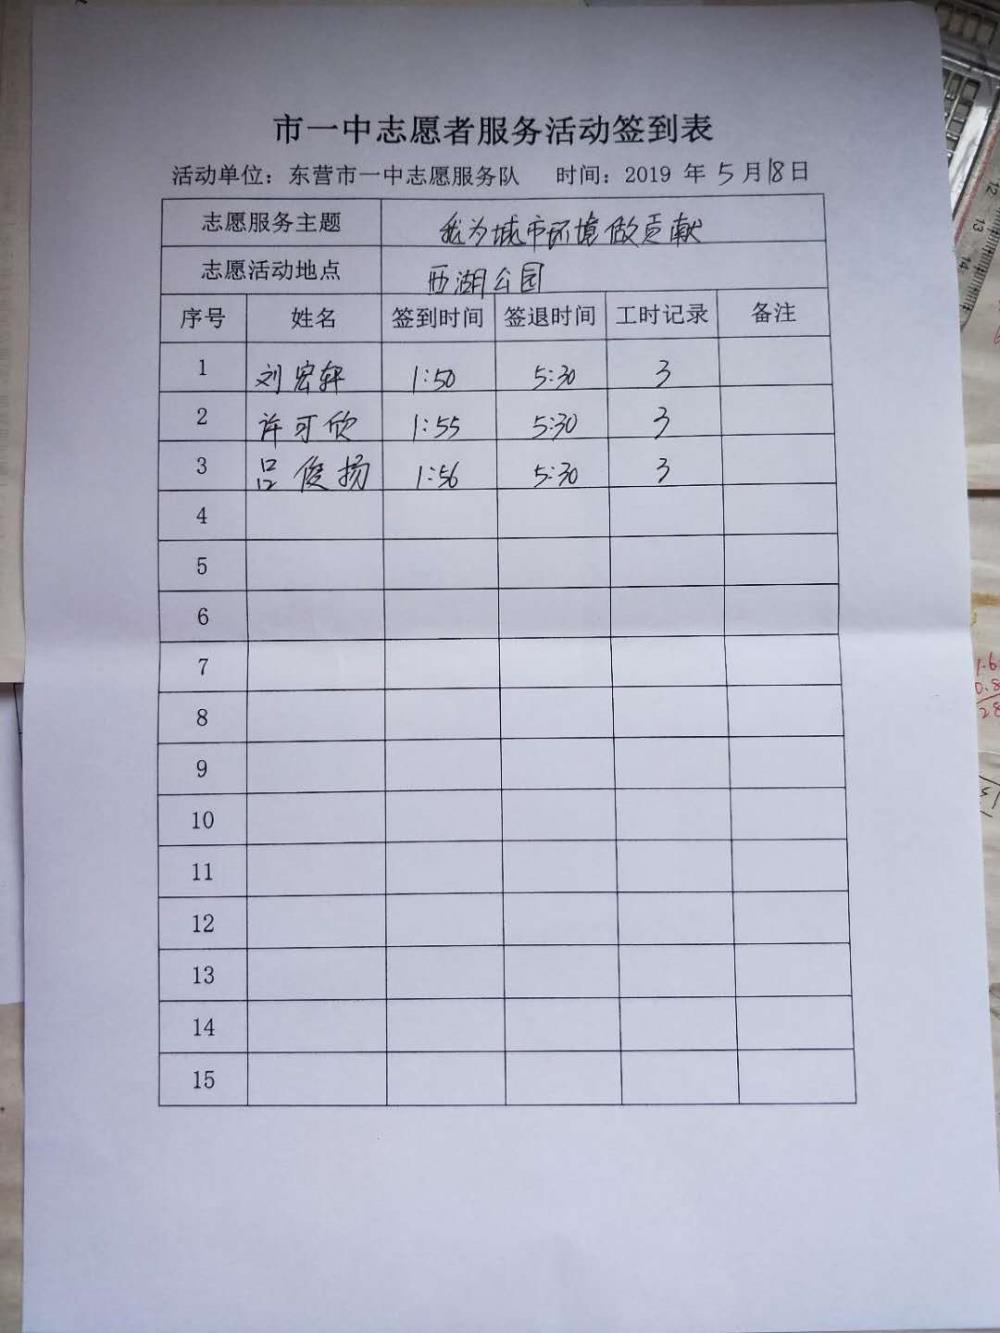 市一中志愿者服务活动签到表
活动单位：东营市一中志愿服务队 时间：2019 年 5 月 18 日
志愿服务主题 我为城市环境做贡献
志愿活动地点 西湖公园
序号 姓名 签到时间 签退时间 工时记录 备注
1 刘宏轩 1:50 5:30 3
2 许可欣 1:55 5:30 3
3 吕俊扬 1:56 5:30 3
4
5
6
7
8
9
10
11
12
13
14
15
12
13
14
1.6
0.8
28